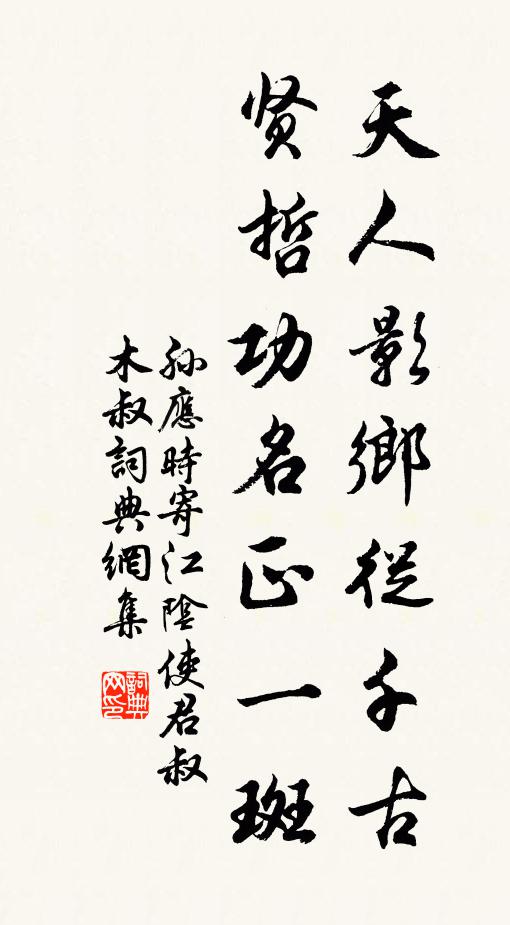 天人影鄉從千古
贤哲功名正一斑
孙應時寄江陰使君叔
木叔詞典網集
詞典网印